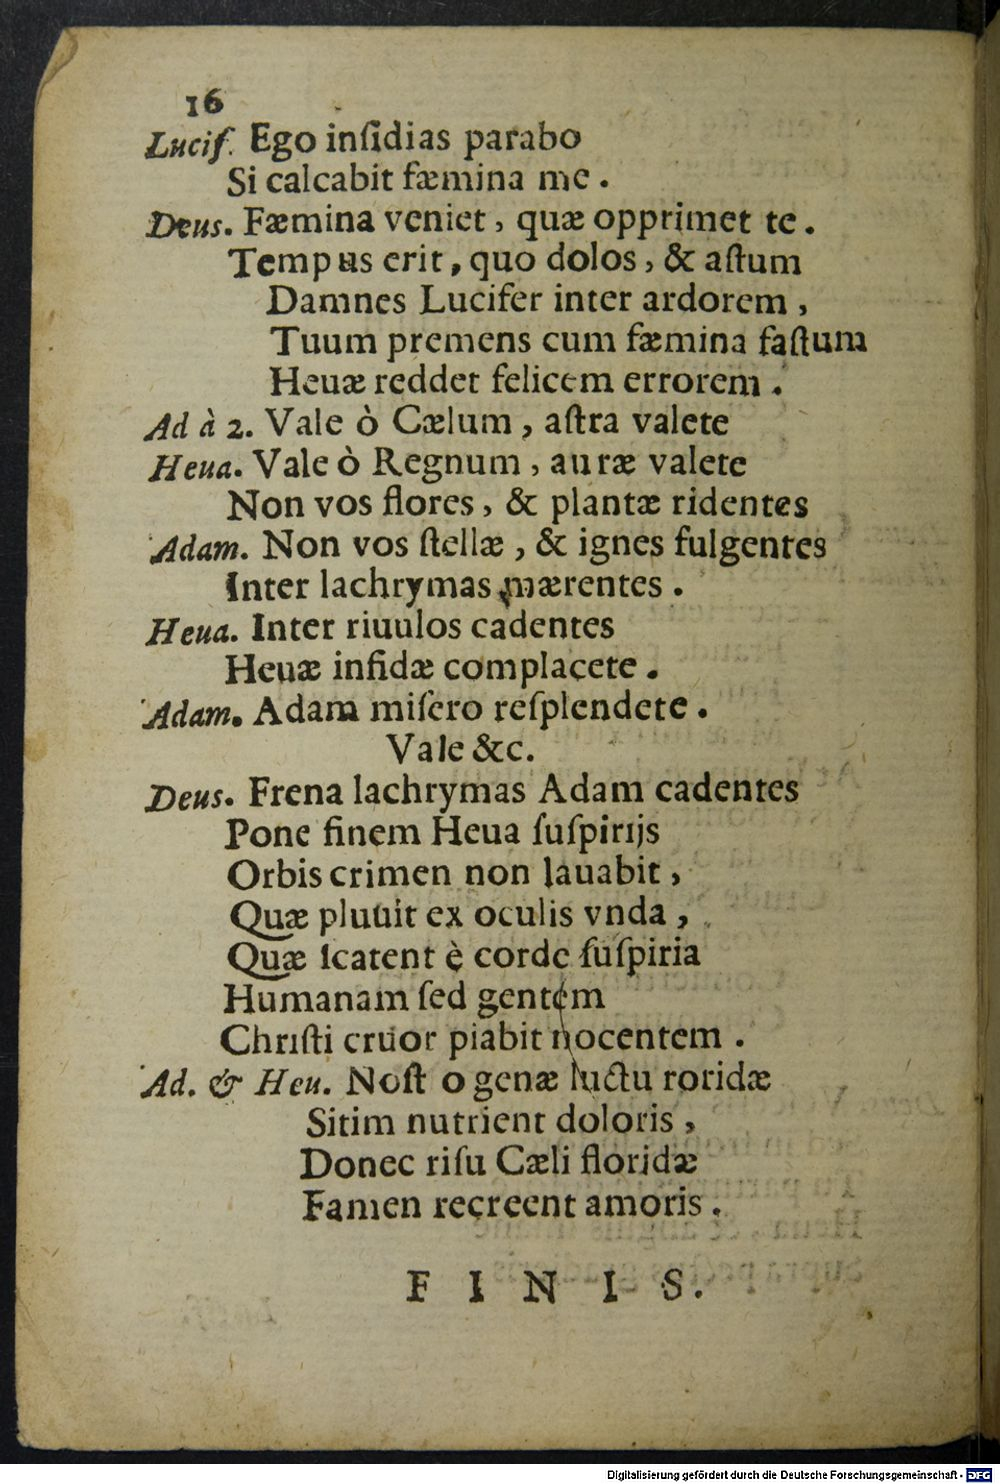 16
Lucif. Ego inſidias parabo
Si calcabit fæmina me.
Deus. Fæmina veniet, quæ opprimet te.
Tempus erit, quo dolos, & aſtum
Damnes Lucifer inter ardorem,
Tuum premens cum fæmina faſtum
Heuæ reddet felicem errorem.
Ad à 2. Vale ò Cælum, aſtra valete
Heua. Vale ò Regnum, auræ valete
Non vos flores, & plantæ ridentes
Adam. Non vos ſtellæ, & ignes fulgentes
Inter lachrymas mærentes.
Heua. Inter riuulos cadentes
Heuæ infidæ complacete.
Adam. Adam miſero reſplendete.
Vale &c.
Deus. Frena lachrymas Adam cadentes
Pone finem Heua ſuſpirijs
Orbis crimen non lauabit,
Quæ pluuit ex oculis vnda,
Quæ ſcatent è corde ſuſpiria
Humanam ſed gentem
Chriſti cruor piabit nocentem.
Ad. & Heu. Noſt o genæ luctu roridæ
Sitim nutrient doloris,
Donec riſu Cæli floridæ
Famen recreent amoris.
FINIS.
Digitalisierung gefördert durch die Deutsche Forschungsgemeinschaft - DFG